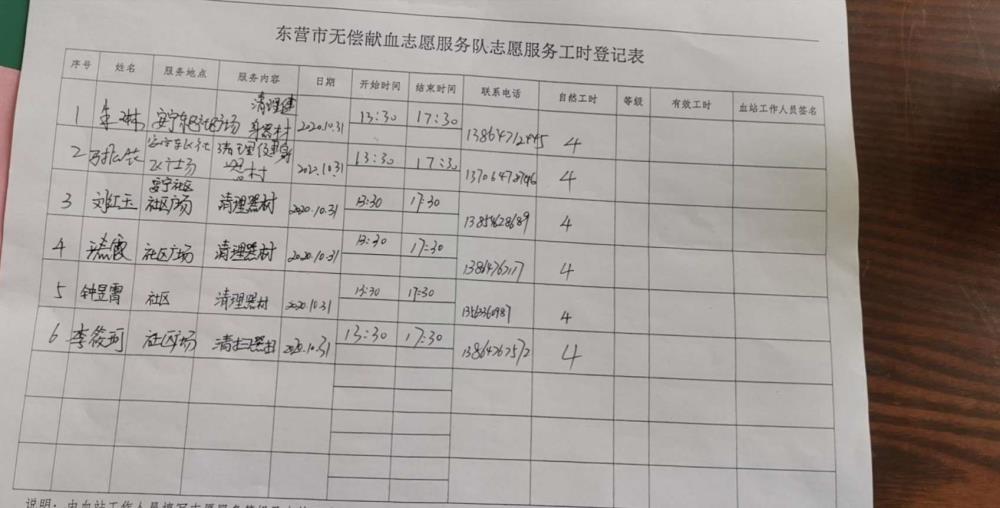 东营市无偿献血志愿服务队志愿服务工时登记表
序号 姓名 服务地点 服务内容 日期 开始时间 结束时间 联系电话 自然工时 等级 有效工时 血站工作人员签名
1 安宁社区广场 清理健身器材 2020.10.31 13:30 17:30 4
2 2020.10.31 13:30 17:30 4
3 刘红玉 安宁社区社区广场 清理器材 2020.10.31 13:30 17:30 13854628689 4
4 霞 社区广场 清理器材 2020.10.31 13:30 17:30 4
5 钟昱霄 社区 清理器材 2020.10.31 13:30 17:30 4
6 李筱珂 社区广场 清扫器材 2020.10.31 13:30 17:30 13864767572 4
说明：由血站工作人员填写志愿服务等级及